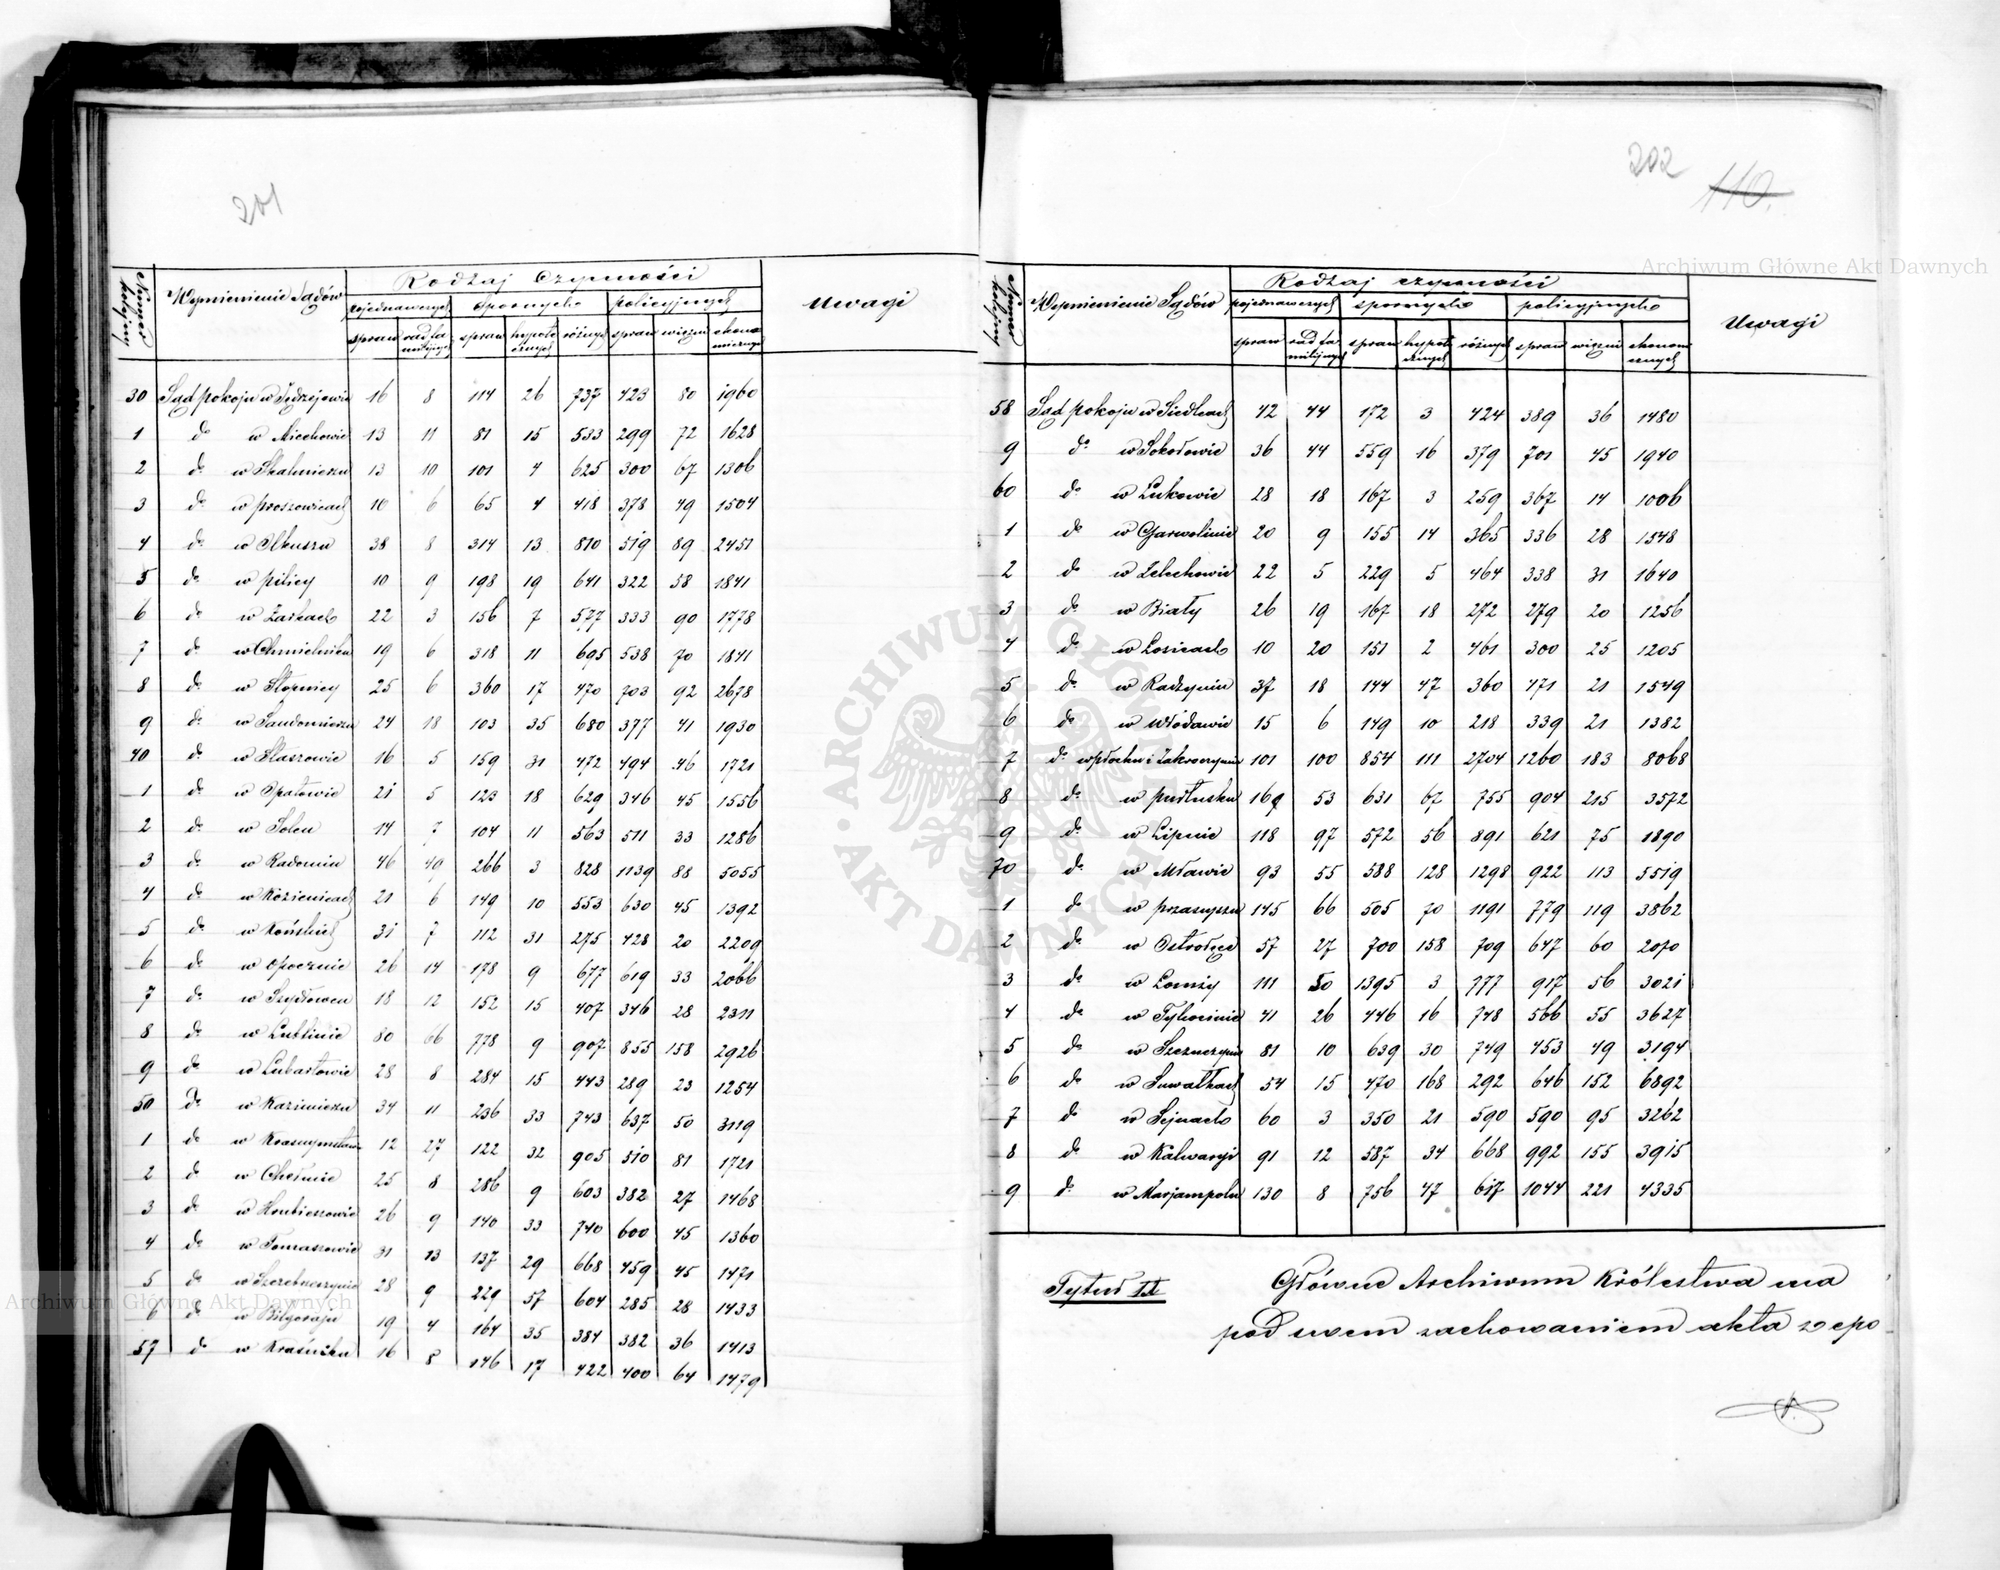 201
Numer kolejny Wymienienie Sądów Rodzaj Czynności Uwagi
pojednawczych spornych policyjnych
spraw rad familijnych spraw hypotecznych różnych spraw więzni ekonomicznych
30 Sąd pokoju w Jędrzejowie 16 8 114 26 737 423 80 1960
1 do w Miechowie 13 11 81 15 533 299 72 1628
2 do w Skalmierzu 13 10 101 4 625 300 67 1306
3 do w Proszowicach 10 6 65 4 418 378 49 1504
4 do w Olkuszu 38 8 314 13 810 519 89 2451
5 do w Pilicy 10 9 198 19 641 322 58 1841
6 do w Żarkach 22 3 156 7 577 333 90 1778
7 do w Chmielniku 19 6 318 11 695 538 70 1841
8 do w Stopnicy 25 6 360 17 470 703 92 2678
9 do w Sandomierzu 24 18 103 35 680 377 41 1930
40 do w Staszowie 16 5 159 31 472 494 46 1721
1 do w Opatowie 21 5 123 18 629 346 45 1556
2 do w Solcu 14 7 104 11 563 511 33 1286
3 do w Radomiu 46 49 266 3 828 1139 88 5055
4 do w Kozienicach 21 6 149 10 553 630 45 1392
5 do w Końskich 31 7 112 31 275 428 20 2209
6 do w Opocznie 26 14 178 9 677 619 33 2066
7 do w Szydłowcu 18 12 152 15 407 346 28 2311
8 do w Lublinie 80 66 778 9 907 855 158 2926
9 do w Lubartowie 28 8 284 15 443 289 23 1254
50 do w Kazimierzu 34 11 236 33 743 637 50 3119
1 do w Krasnymstawie 12 27 122 32 905 510 81 1721
2 do w Chełmie 25 8 286 9 603 382 27 1468
3 do w Hrubieszowie 26 9 140 33 740 600 45 1360
4 do w Tomaszowie 31 13 137 29 668 459 45 1471
5 do w Szczebrzeszynie 28 9 229 57 604 285 28 1433
6 do w Biłgoraju 19 4 164 35 384 382 36 1413
57 do w Kraśniku 16 8 146 17 422 400 64 1479
202
110.
Numer kolejny Wymienienie Sądów Rodzaj czynności Uwagi
pojednawczych spornych policyjnych
spraw rad familijnych spraw hypotecznych różnych spraw więzni ekonomicznych
58 Sąd pokoju w Siedlcach 42 44 172 3 424 389 36 1480
9 do w Sokołowie 36 44 559 16 379 701 45 1940
60 do w Łukowie 28 18 167 3 259 367 14 1006
1 do w Garwolinie 20 9 155 14 365 336 28 1548
2 do w Żelechowie 22 5 229 5 464 338 31 1640
3 do w Biały 26 19 167 18 272 279 20 1256
4 do w Łosicach 10 20 151 2 461 300 25 1205
5 do w Radzyniu 37 18 144 47 360 471 21 1549
6 do w Włodawie 15 6 149 10 218 339 21 1382
7 do w Płocku i Zakroczymiu 101 100 854 111 2704 1260 183 8068
8 do w Pułtusku 169 53 631 67 755 904 215 3572
9 do w Lipnie 118 97 572 56 891 621 75 1890
70 do w Mławie 93 55 588 128 1298 922 113 5519
1 do w Przasnyszu 145 66 505 70 1191 779 119 3862
2 do w Ostrołęce 57 27 700 158 709 647 60 2070
3 do w Łomży 111 50 1395 3 777 917 56 3021
4 do w Tykocinie 41 26 446 16 748 566 55 3627
5 do w Szczuczynie 81 10 639 30 749 453 49 3194
6 do w Suwałkach 54 15 470 168 292 646 152 6892
7 do w Sejnach 60 3 350 21 590 590 95 3262
8 do w Kalwaryi 91 12 587 34 668 992 155 3915
9 do w Marjampolu 130 8 756 47 617 1044 221 4335
Tytuł II Główne Archiwum Królestwa ma
pod swem zachowaniem akta z epo
ARCHIWUM GŁÓWNE AKT DAWNYCH
Archiwum Główne Akt Dawnych
Archiwum Główne Akt Dawnych